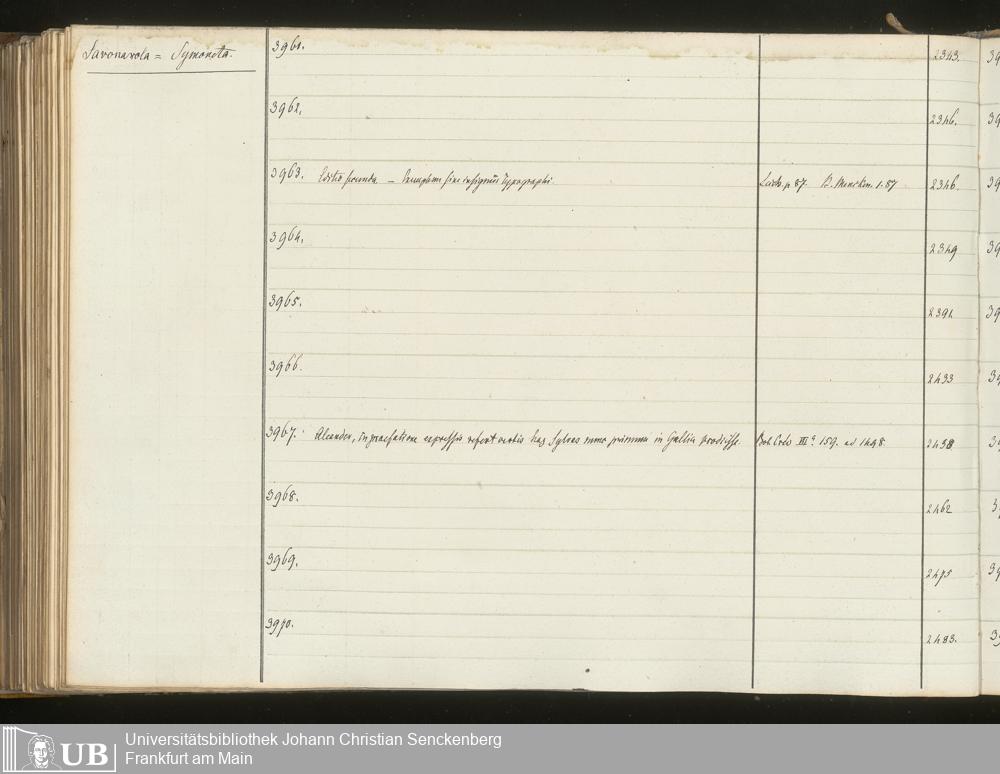 Savonarola = Symoneta.
3961. 2343.
3962. 2346.
3963. Editio secunda. — Exemplum sine insignibus typographi. p. 87. B. Mencken. 1. 87 2346
3964. 2349
3965. 2391
3966. 2433
3967. Aleander, in praefatione expressis refert verbis has Sylvas nunc primum in Gallia prodiisse. III. 159. ad 1498. 2438
3968. 2462
3969. 2475
3970. 2483.
UB Universitätsbibliothek Johann Christian Senckenberg
Frankfurt am Main